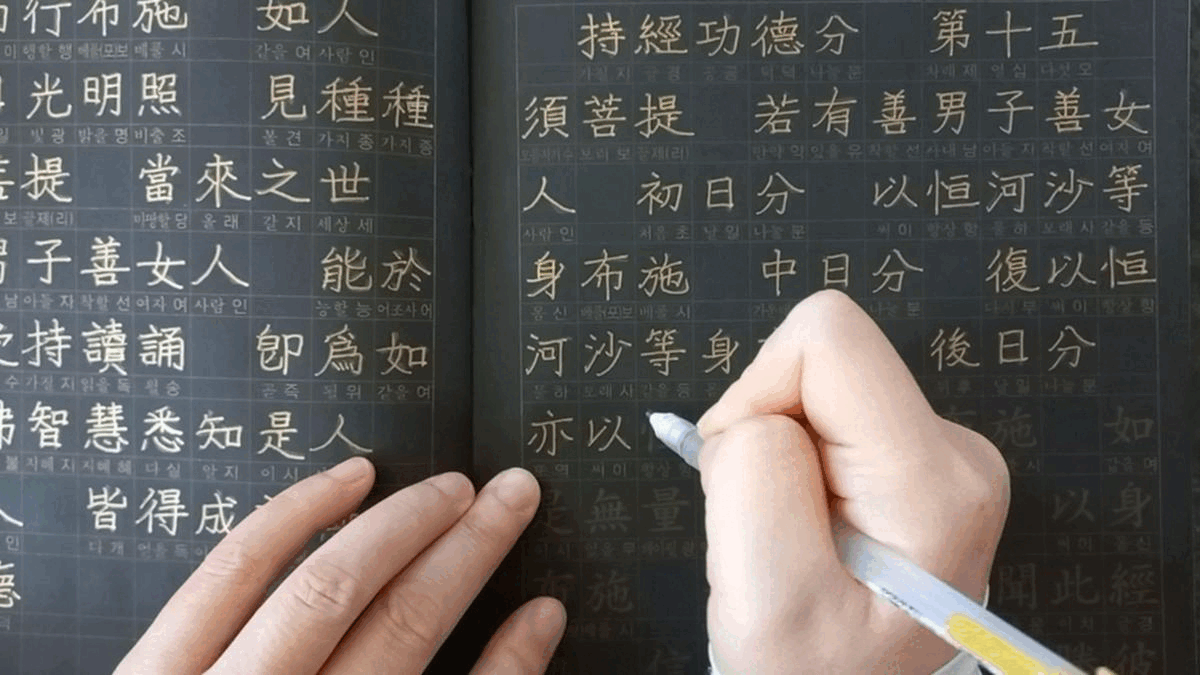 行布施 如人
행할 행 베풀(포)보 베풀 시 같을 여 사람 인
光明照 見種種
빛 광 밝을 명 비출 조 볼 견 가지 종 가지 종
提 當來之世
보 끌제(리) 마땅할 당 올 래 갈 지 세상 세
子善女人 能於
남 아들 자 착할 선 여자 여 사람 인 능할 능 어조사 어
持讀誦 卽爲如
수 가질 지 읽을 독 욀 송 곧 즉 될 위 같을 여
智慧悉知是人
불 지혜 지 지혜 혜 다 실 알 지 이 시
皆得成
다 개 얻을 득
持經功德分 第十五
가질 지 글 경 공 공 덕 덕 나눌 분 차례 제 열 십 다섯 오
須菩提 若有善男子善女
보리 보 끌제(리) 만약 약 있을 유 착할 선 사내 남 아들 자 착할 선 여자 여
人 初日分 以恒河沙等
사람 인 처음 초 날 일 나눌 분 써 이 항상 항 물 하 모래 사 같을 등
身布施 中日分 復以恒
몸 신 베풀(포)보 베풀 시 나눌 분 다시 부 써 이 항상 항
河沙等身 後日分
물 하 모래 사 같을 등 뒤 후 날 일 나눌 분
亦以 施 如
또 역 써 이 항상 항 같을 여
是無量 以身
이 시 없을 무 써 이 몸 신
布施 聞此經
베풀 시 이 차 글 경
信 勝彼